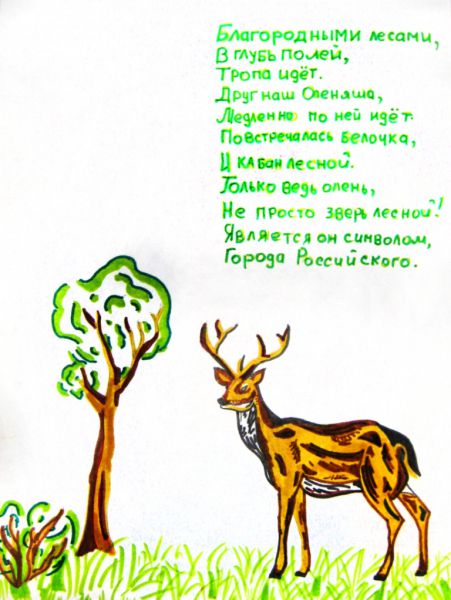 Благородными лесами,
В глубь полей,
Тропа идёт.
Друг наш Оленяша,
Медленно по ней идёт.
Повстречалась Белочка,
И кабан лесной.
Только ведь олень,
Не просто зверь лесной!
Является он символом,
Города Российского.